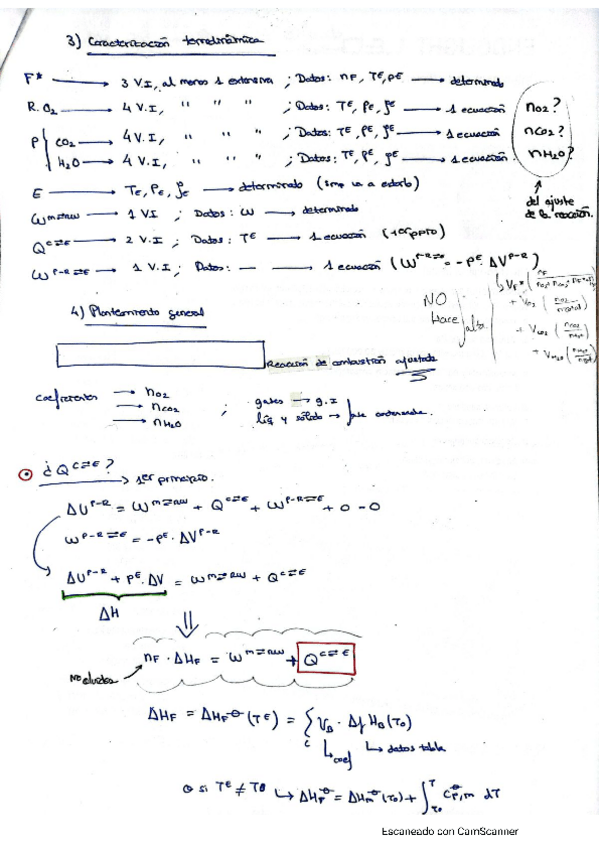 3) Caracterización termodinámica
F* → 3 V.I, al menos 1 extensiva ; Datos: nF, TE, PE → determinado
R. O2 → 4 V.I, " " " ; Datos: TE, PE, ξE → 1 ecuación
P { CO2 → 4 V.I, " " " ; Datos: TE, PE, ξE → 1 ecuación
H2O → 4 V.I, " " " ; Datos: TE, PE, ξE → 1 ecuación
nO2?
nCO2?
nH2O?
del ajuste de la reacción.
E → TE, PE, ξE → determinado (smp va a estarlo)
W m⇌RW → 1 V.I ; Datos: W → determinado
Q C⇌E → 2 V.I ; Datos: TE → 1 ecuación (1er ppio)
W P-R⇌E → 1 V.I ; Datos: — → 1 ecuación (W P-R⇌E = -PE · ΔV P-R)
NO Hace falta
4) Planteamiento general
Reacción de combustión ajustada
coeficientes → nO2
→ nCO2 ; gases → g.I
→ nH2O líq y sólido → fase condensada.
¿Q C⇌E? → 1er principio.
ΔU P-R = W m⇌RW + Q C⇌E + W P-R⇌E + 0 - 0
W P-R⇌E = -PE · ΔV P-R
ΔU P-R + PE · ΔV = W m⇌RW + Q C⇌E
ΔH
⇓
nF · ΔHF = W m⇌RW + Q C⇌E
No olvidar
ΔHF = ΔHF⦵(TE) = { νB · Δf HB(T0)
coef datos tabla
si TE ≠ T0 ↳ ΔHF⦵ = ΔHm⦵(T0) + ∫T0 T C⦵P,m dT
Escaneado con CamScanner